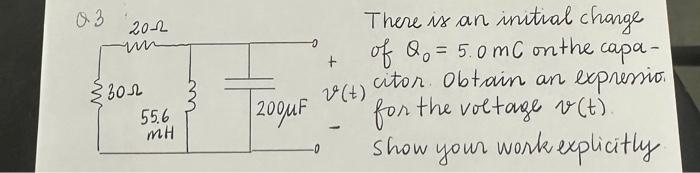 Q3
20Ω
30Ω
55.6
mH
200μF
+
v(t)
-
There is an initial charge
of Q₀ = 5.0 mC on the capa-
citor. Obtain an expressio.
for the voltage v(t).
Show your work explicitly